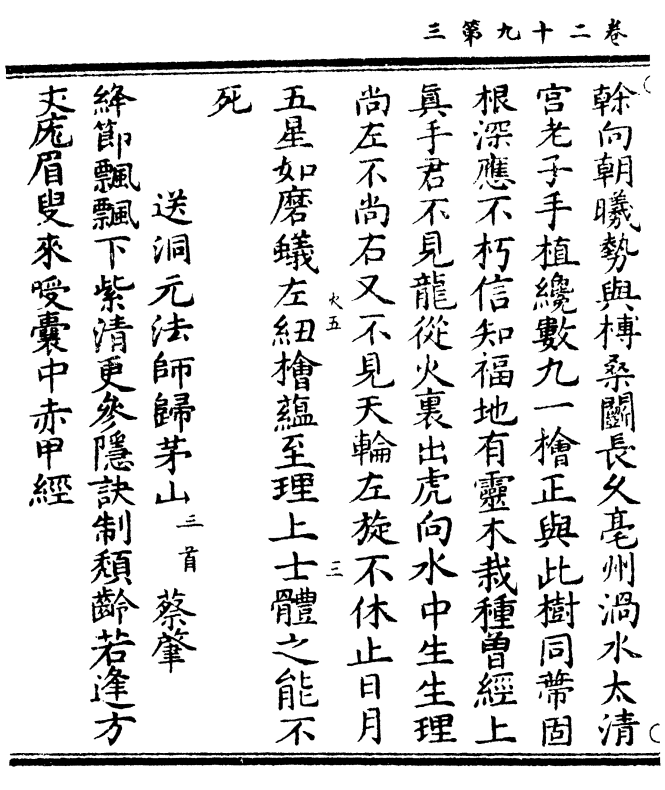 卷二十九第三
榦向朝曦勢與榑桑鬭長乆亳州渦水太清
宫老子手植纔數九一檜正與此樹同蔕固
根深應不朽信知福地有靈木栽種曽經上
眞手君不見龍從火裏出虎向水中生生理
尚左不尚右又不見天輪左旋不休止日月
五星如磨蟻左紐檜藴至理上士體之能不
死
火五
三
送洞元法師歸茅山三首 蔡肇
絳節飄飄下紫清更參隱訣制頽齡若逢方
丈厖眉叟來嘐囊中赤甲經